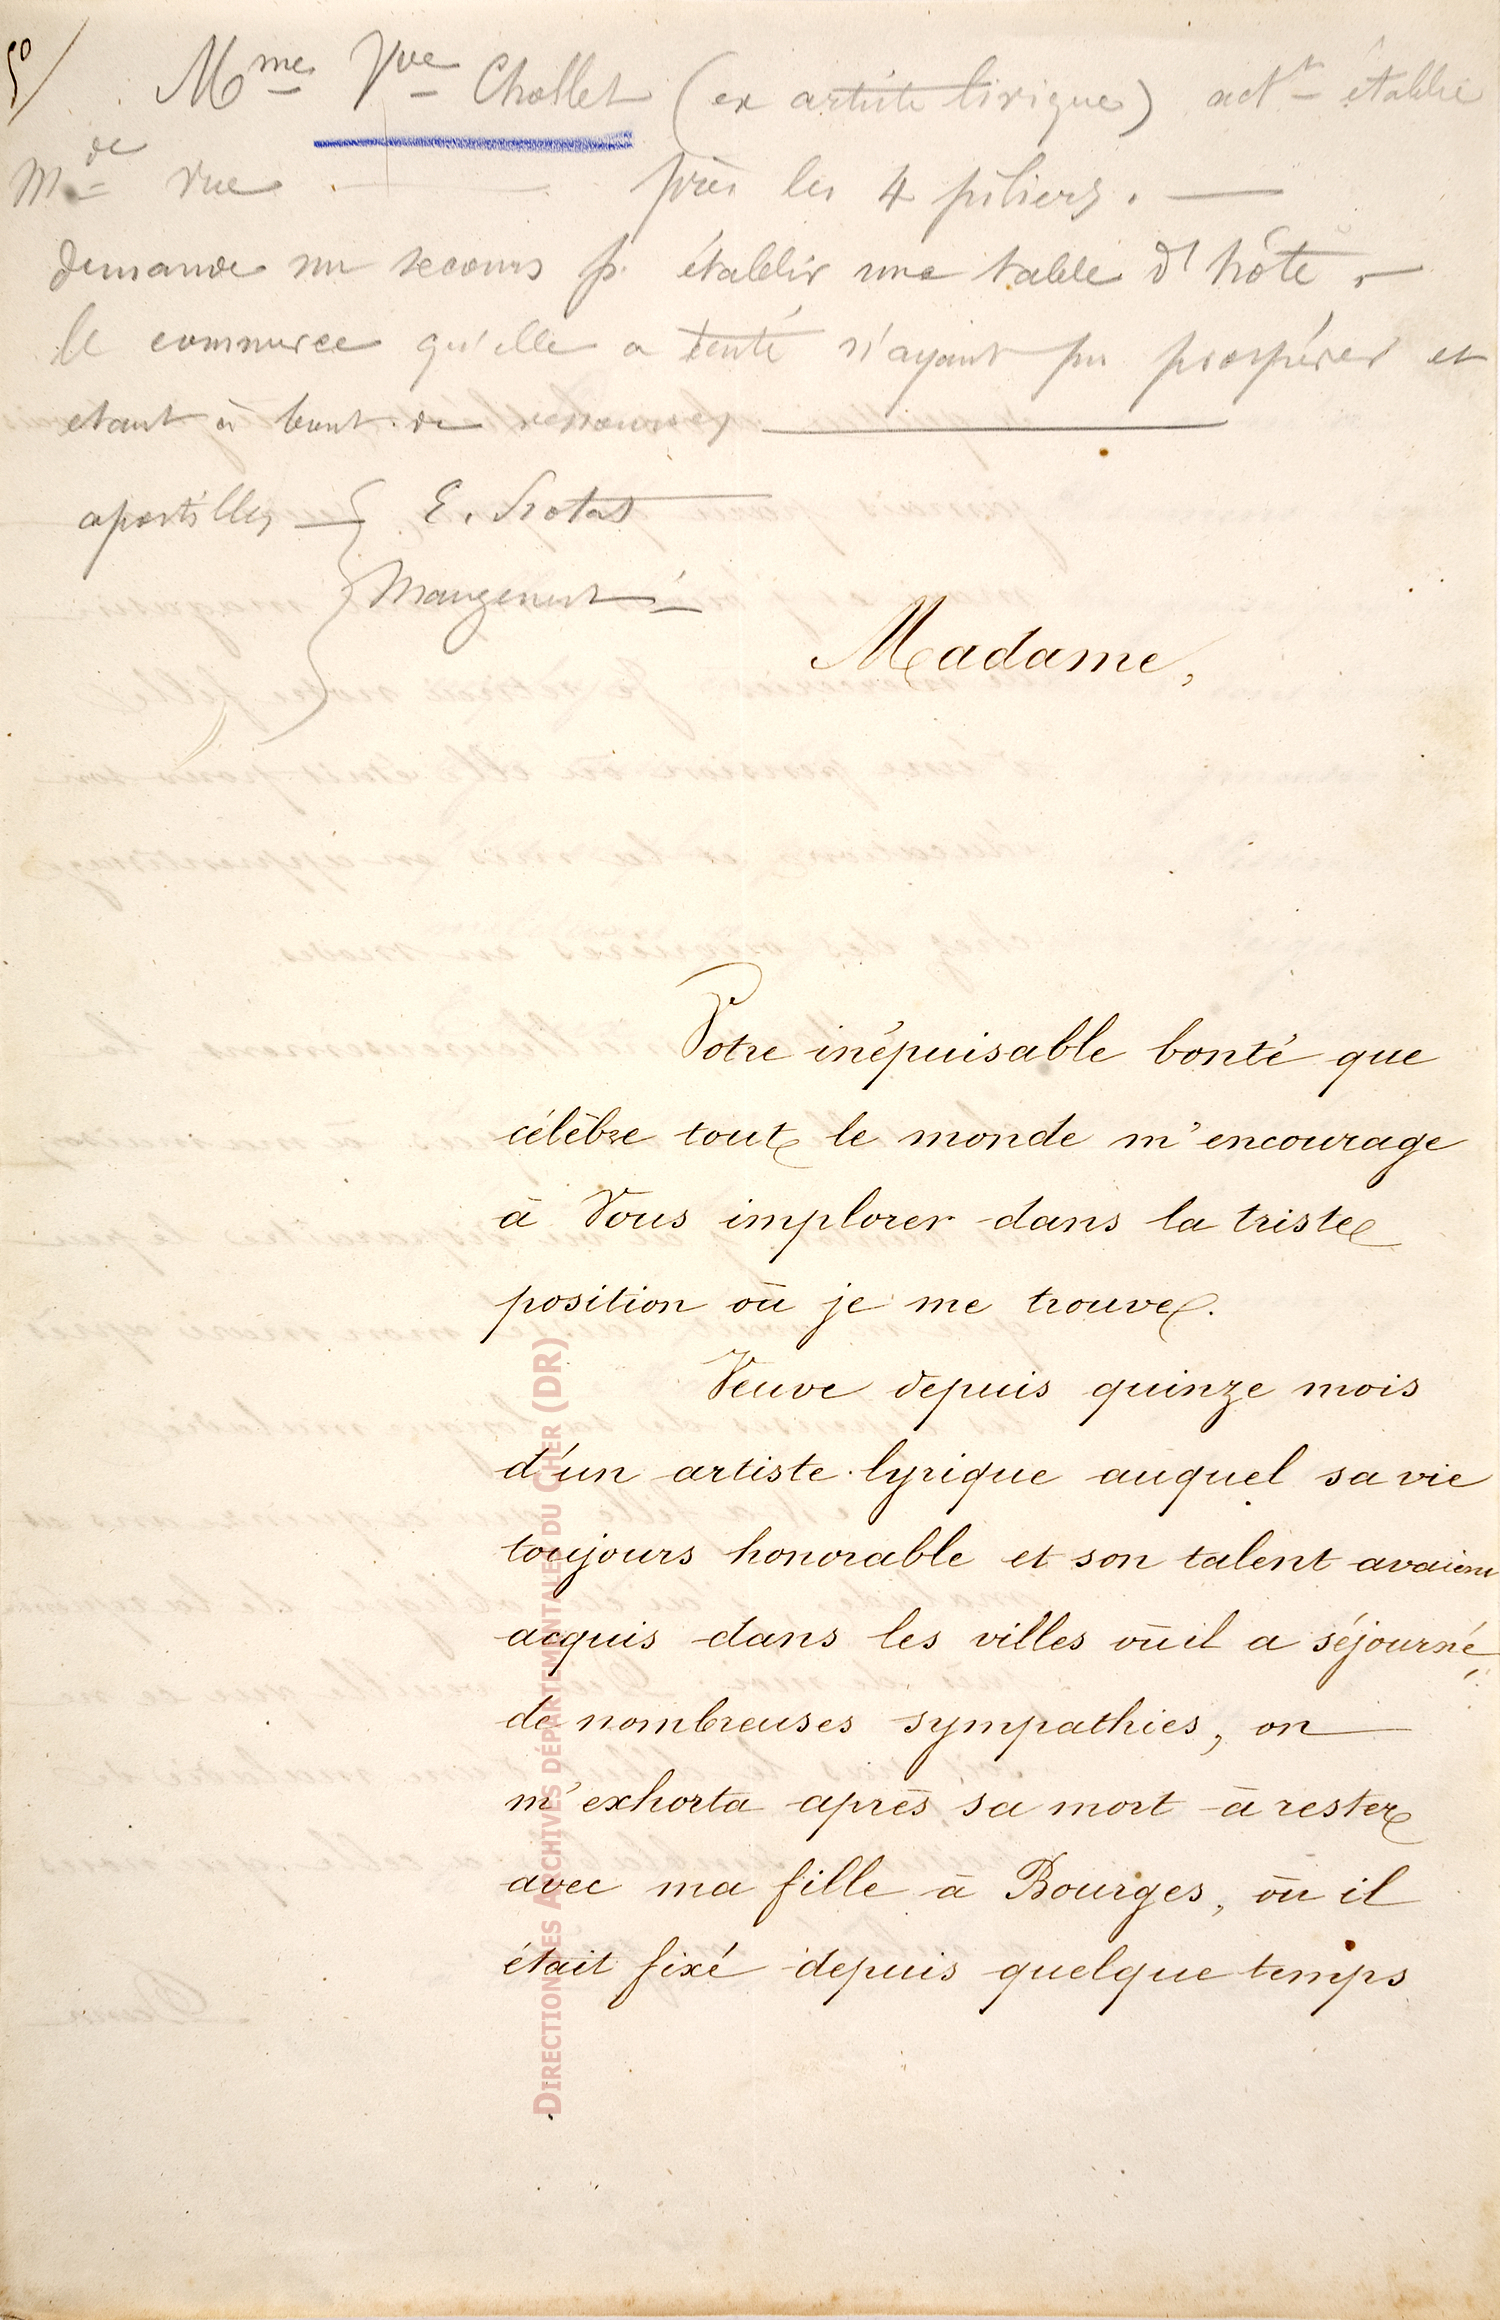 5°/ Mme Vve Chollet (ex artiste lirique) actt établie
Mde rue près les 4 piliers.
demande un secours p. établir une table d'hôte,
le commerce qu'elle a tenté n'ayant pu prospérer et
etant à bout de ressources
apostilles E. Protat
Madame,
Votre inépuisable bonté que
célèbre tout le monde m'encourage
à Vous implorer dans la triste
position où je me trouve.
Veuve depuis quinze mois
d'un artiste lyrique auquel sa vie
toujours honorable et son talent avaient
acquis dans les villes où il a séjourné
de nombreuses sympathies, on
m'exhorta après sa mort à rester
avec ma fille à Bourges, où il
était fixé depuis quelque temps
DIRECTION DES ARCHIVES DÉPARTEMENTALES DU CHER (DR)